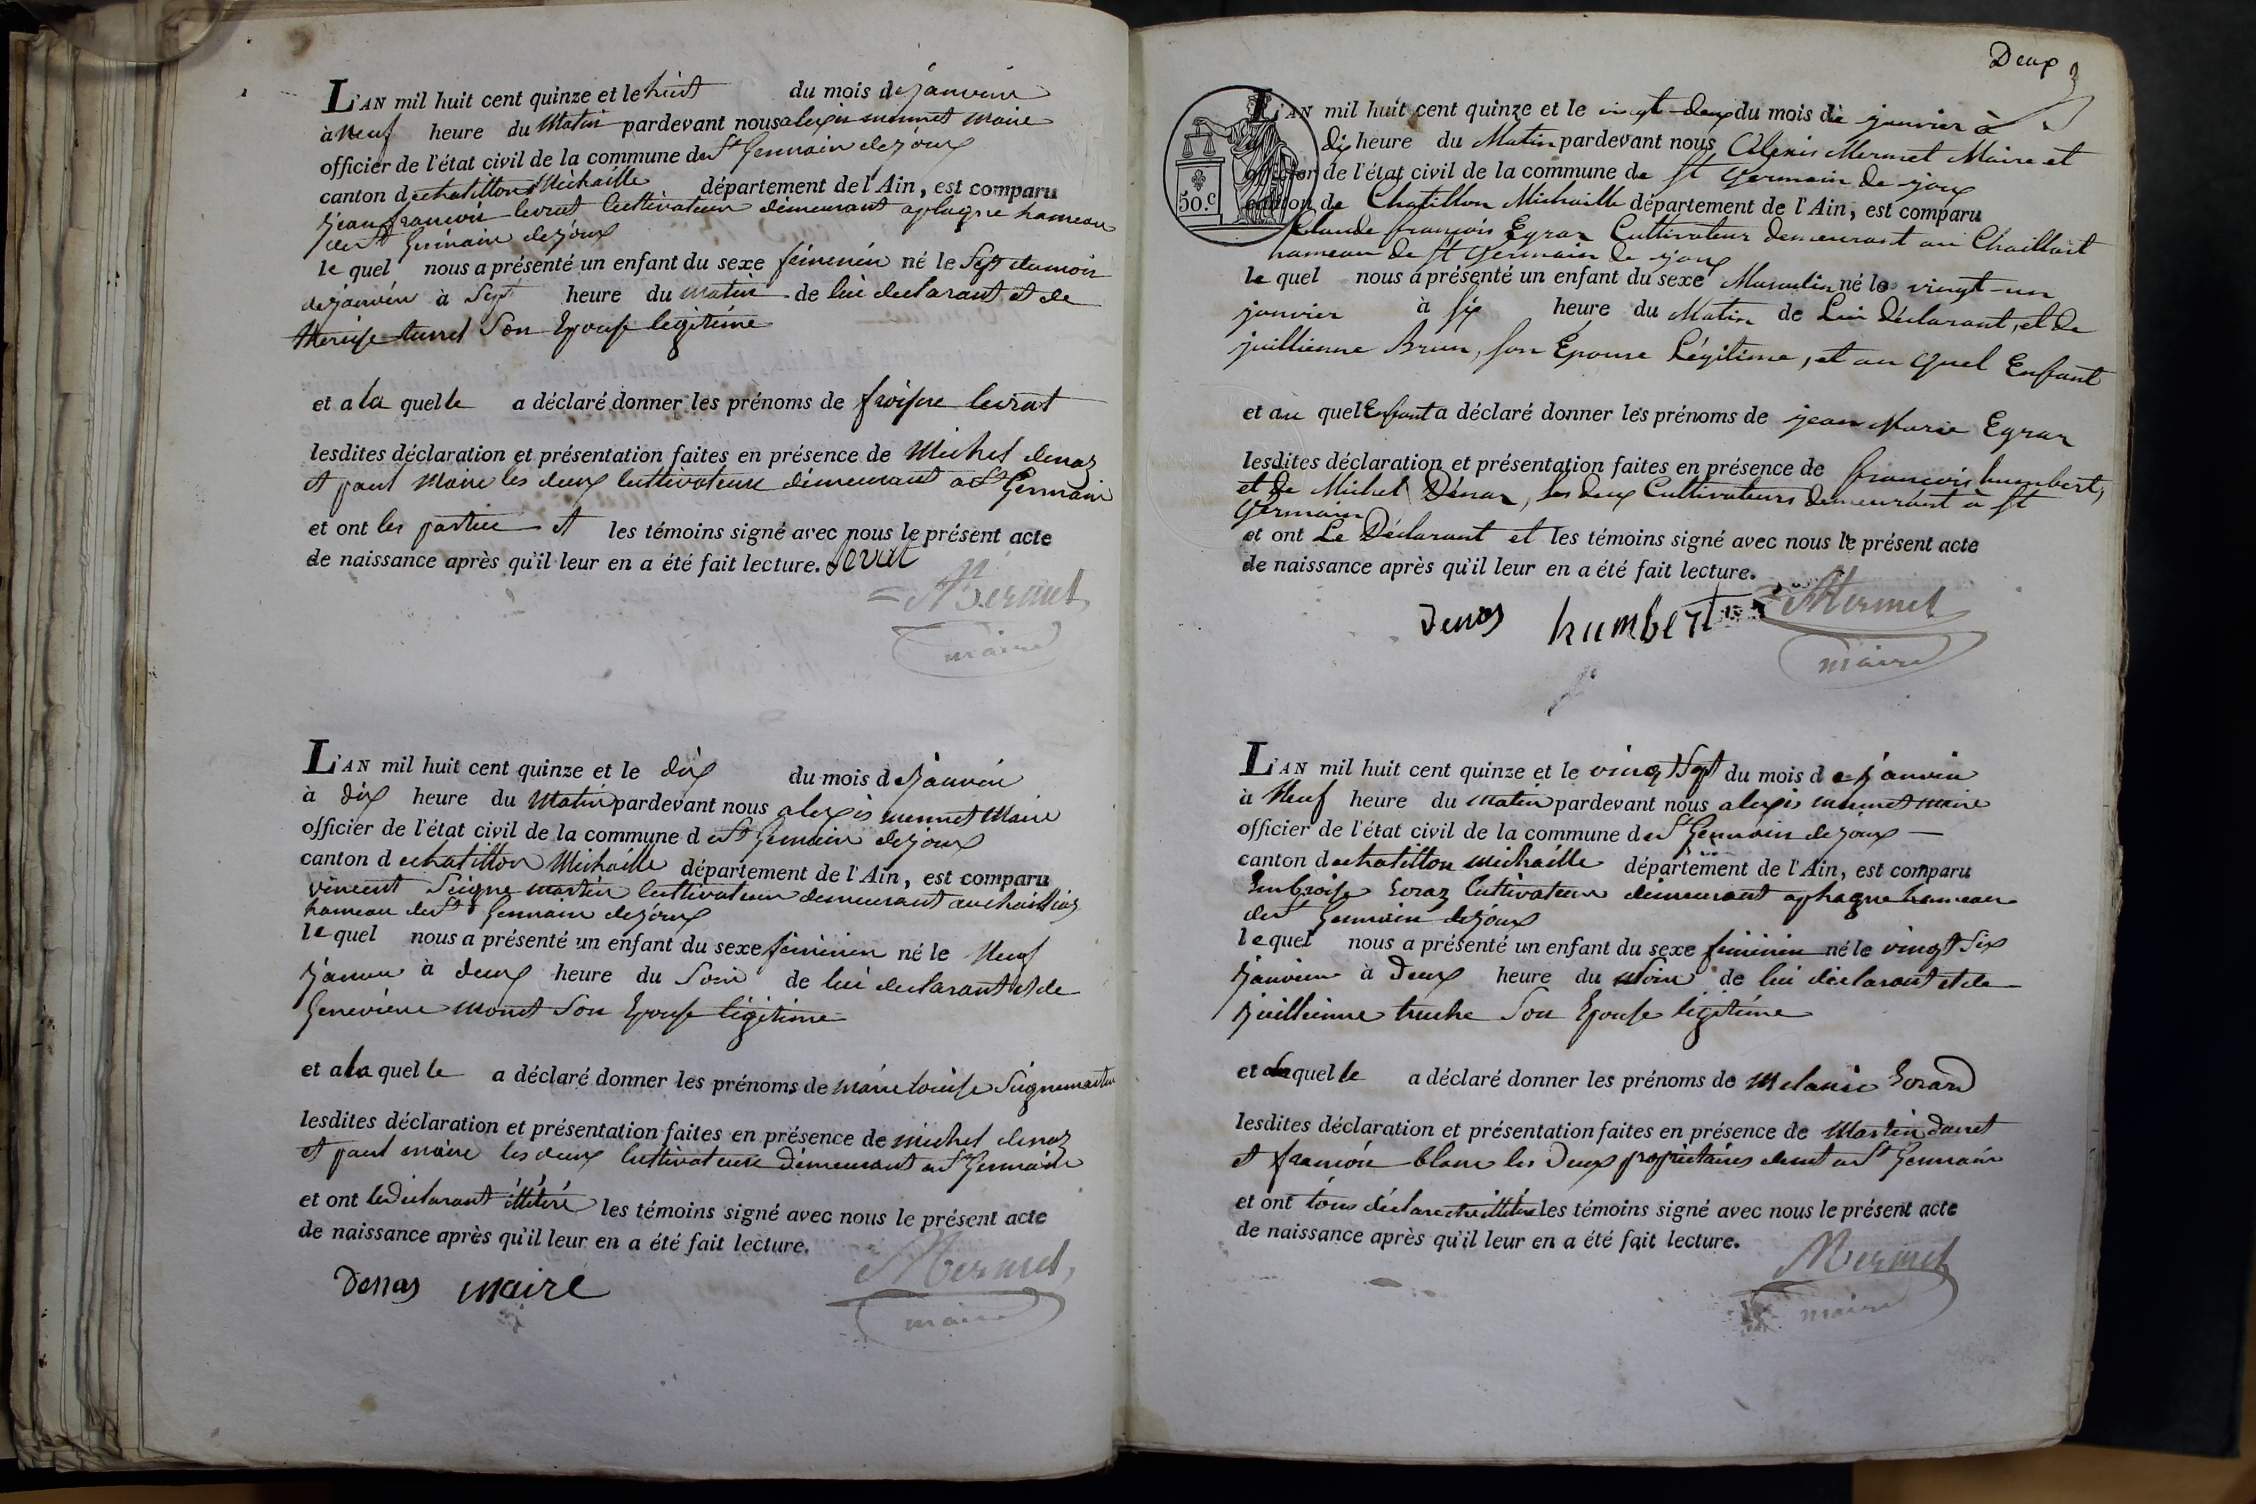 L'AN mil huit cent quinze et le huit du mois de janvier
à Neuf heure du Matin pardevant nous alexis mermet maire
officier de l'état civil de la commune de St Germain de joux
canton de chatillon Michaille département de l'Ain, est comparu
jean françois levrat Cultivateur demeurant a plagne hameau
de St Germain de joux
le quel nous a présenté un enfant du sexe féminin né le Sept du mois
de janvier à Sept heure du matin de lui declarant et de
therèse turrel Son Epouse legitime
et a la quelle a déclaré donner les prénoms de levrat
lesdites déclaration et présentation faites en présence de Michel denaz
et paul Maire les deux Cultivateurs demeurant a St Germain
et ont les parties et les témoins signé avec nous le présent acte
de naissance après qu'il leur en a été fait lecture. levrat
Mermet
maire
L'AN mil huit cent quinze et le dix du mois de janvier
à dix heure du Matin pardevant nous alexis mermet Maire
officier de l'état civil de la commune de St Germain de joux
canton de chatillon Michaille département de l'Ain, est comparu
vincent Seigne martin Cultivateur demeurant au
hameau de St Germain de joux
le quel nous a présenté un enfant du sexe féminin né le Neuf
janvier à deux heure du Soir de lui declarant et de
Geneviève monet Son Epouse légitime
et a la quelle a déclaré donner les prénoms de marie louise Seignemartin
lesdites déclaration et présentation faites en présence de michel denaz
et paul maire les deux Cultivateurs demeurant a St Germain
et ont le declarant illitéré les témoins signé avec nous le présent acte
de naissance après qu'il leur en a été fait lecture.
Denas maire Mermet
maire
Deux
3
50.c
L'AN mil huit cent quinze et le vingt-deux du mois de janvier à
dix heure du Matin pardevant nous Alexis Mermet Maire et
officier de l'état civil de la commune de St Germain de joux
canton de Chatillon Michaille département de l'Ain, est comparu
Claude françois Egraz Cultivateur demeurant au
hameau de St Germain de joux
le quel nous a présenté un enfant du sexe Masculin né le vingt-un
janvier à six heure du Matin de Lui Déclarant, et de
juillienne Brun, son Epouse Légitime, et au quel Enfant
et au quel Enfant a déclaré donner les prénoms de jean Marie Egraz
lesdites déclaration et présentation faites en présence de françois humbert,
et de Michel Dénaz, les deux Cultivateurs demeurant à St
Germain
et ont Le Déclarant et les témoins signé avec nous le présent acte
de naissance après qu'il leur en a été fait lecture.
Denas humbert Mermet
maire
L'AN mil huit cent quinze et le vingt Sept du mois de janvier
à Neuf heure du matin pardevant nous alexis mermet maire
officier de l'état civil de la commune de St Germain de joux
canton de chatillon michaille département de l'Ain, est comparu
Cultivateur demeurant a plagne hameau
de St Germain de joux
le quel nous a présenté un enfant du sexe féminin né le vingt Six
janvier à Deux heure du Soir de lui déclarant et de
juillienne truche Son Epouse légitime
et a la quelle a déclaré donner les prénoms de Melanie
lesdites déclaration et présentation faites en présence de Martin
et françois blanc les Deux propriétaires demt a St Germain
et ont tous déclaré être illitéré les témoins signé avec nous le présent acte
de naissance après qu'il leur en a été fait lecture.
Mermet
maire